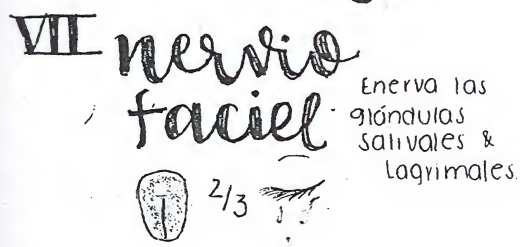 VII nervio
faciel
Enerva las
glóndulas
salivales &
Lagrimales.
2/3